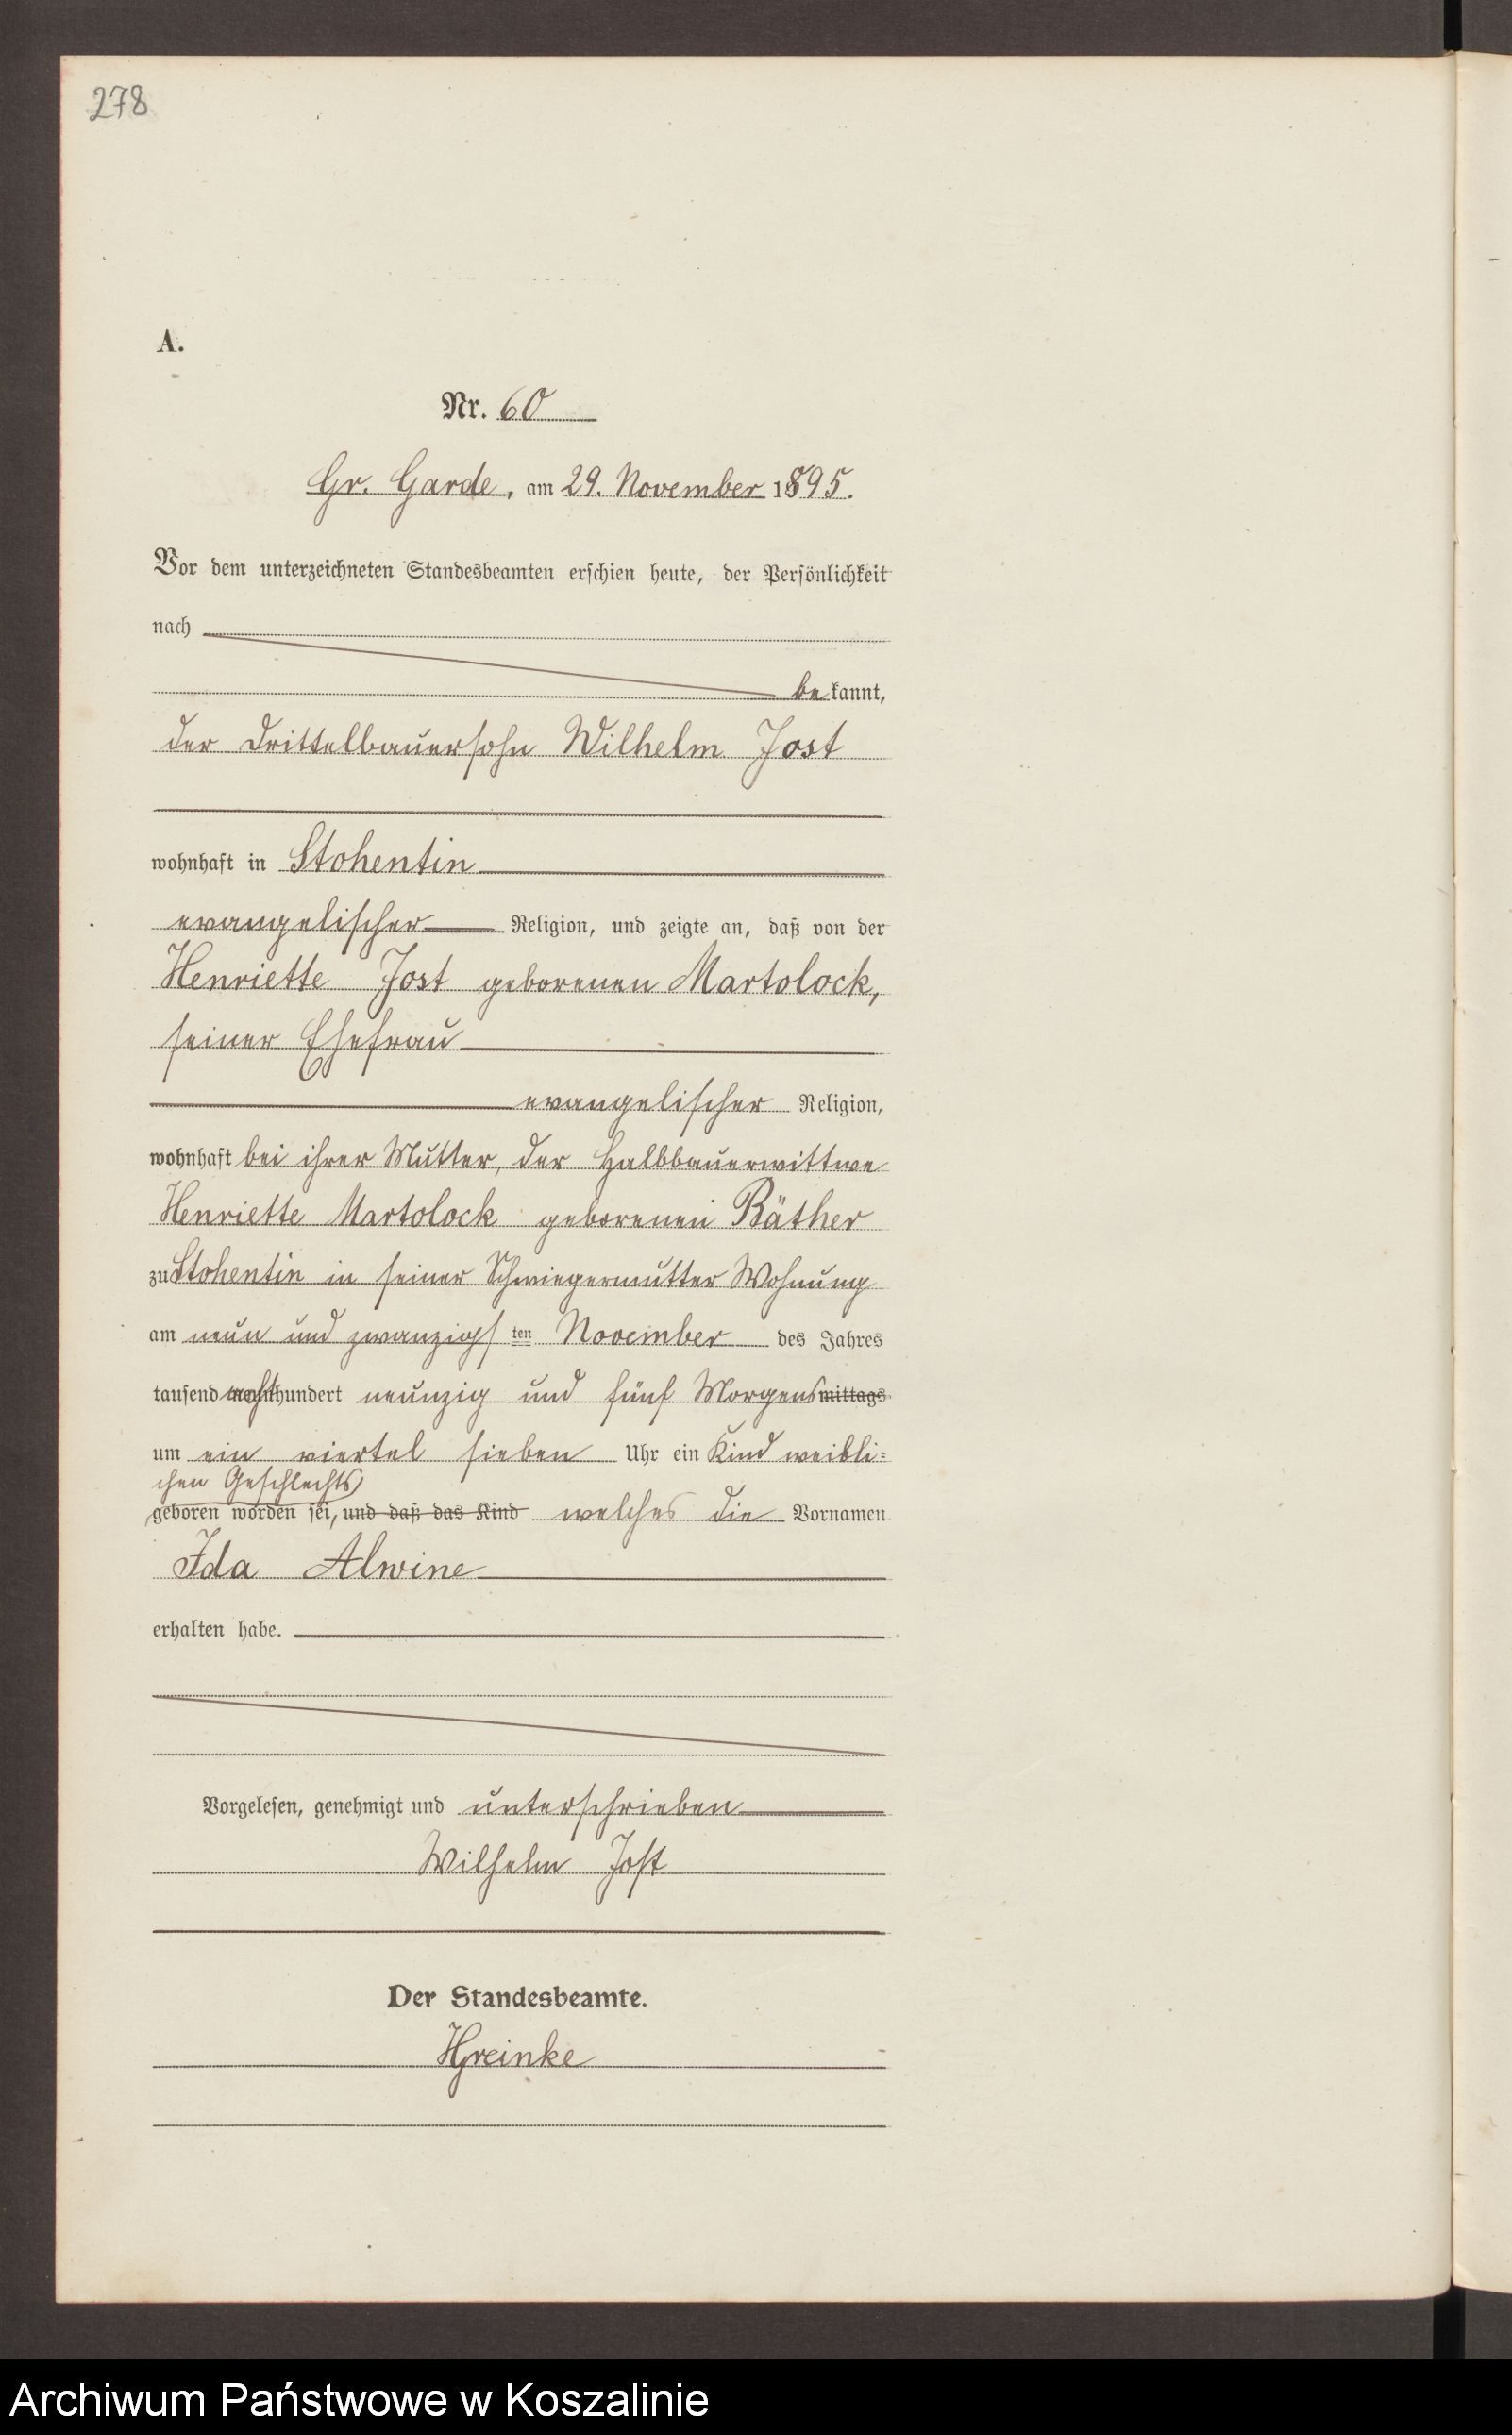 278
A.
Nr. 60
Gr. Garde, am 29. November 1895.
Vor dem unterzeichneten Standesbeamten erschien heute, der Persönlichkeit
nach
bekannt,
der Drittelbauersohn Wilhelm Jost
wohnhaft in Stohentin
evangelischer Religion, und zeigte an, daß von der
Henriette Jost geborenen Martolock,
seiner Ehefrau
evangelischer Religion,
wohnhaft bei ihrer Mutter, der Halbbauerwittwe
Henriette Martolock geborenen Bäther
zu Stohentin in seiner Schwiegermutter Wohnung
am neun und zwanzigsten November des Jahres
tausend achthundert neunzig und fünf Morgens mittags
um ein viertel sieben Uhr ein Kind weibli=
chen Geschlechts
geboren worden sei, und daß das Kind welches die Vornamen
Ida Alwine
erhalten habe.
Vorgelesen, genehmigt und unterschrieben
Wilhelm Jost
Der Standesbeamte.
Hreinke
Archiwum Państwowe w Koszalinie